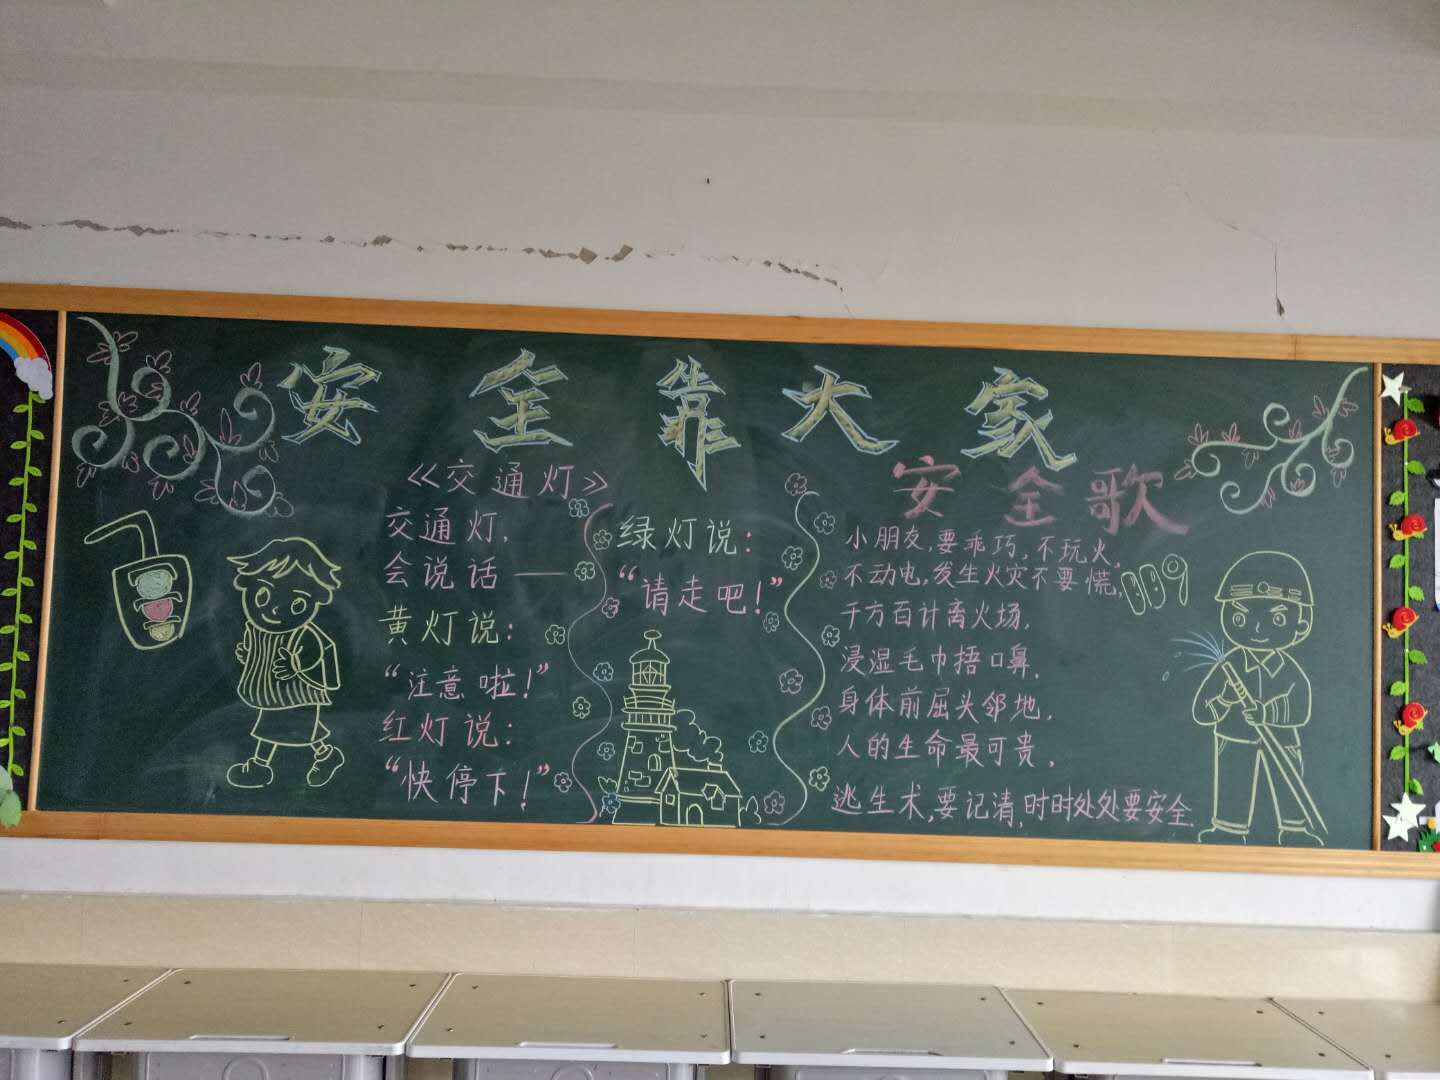 安全靠大家
《交通灯》
交通灯，
会说话——
黄灯说：
“注意啦！”
红灯说：
“快停下！”
绿灯说：
“请走吧！”
安全歌
小朋友，要乖巧，不玩火，
不动电，发生火灾不要慌，
千方百计离火场，
浸湿毛巾捂口鼻，
身体前屈头邻地，
人的生命最可贵，
逃生术，要记清，时时处处要安全.
119